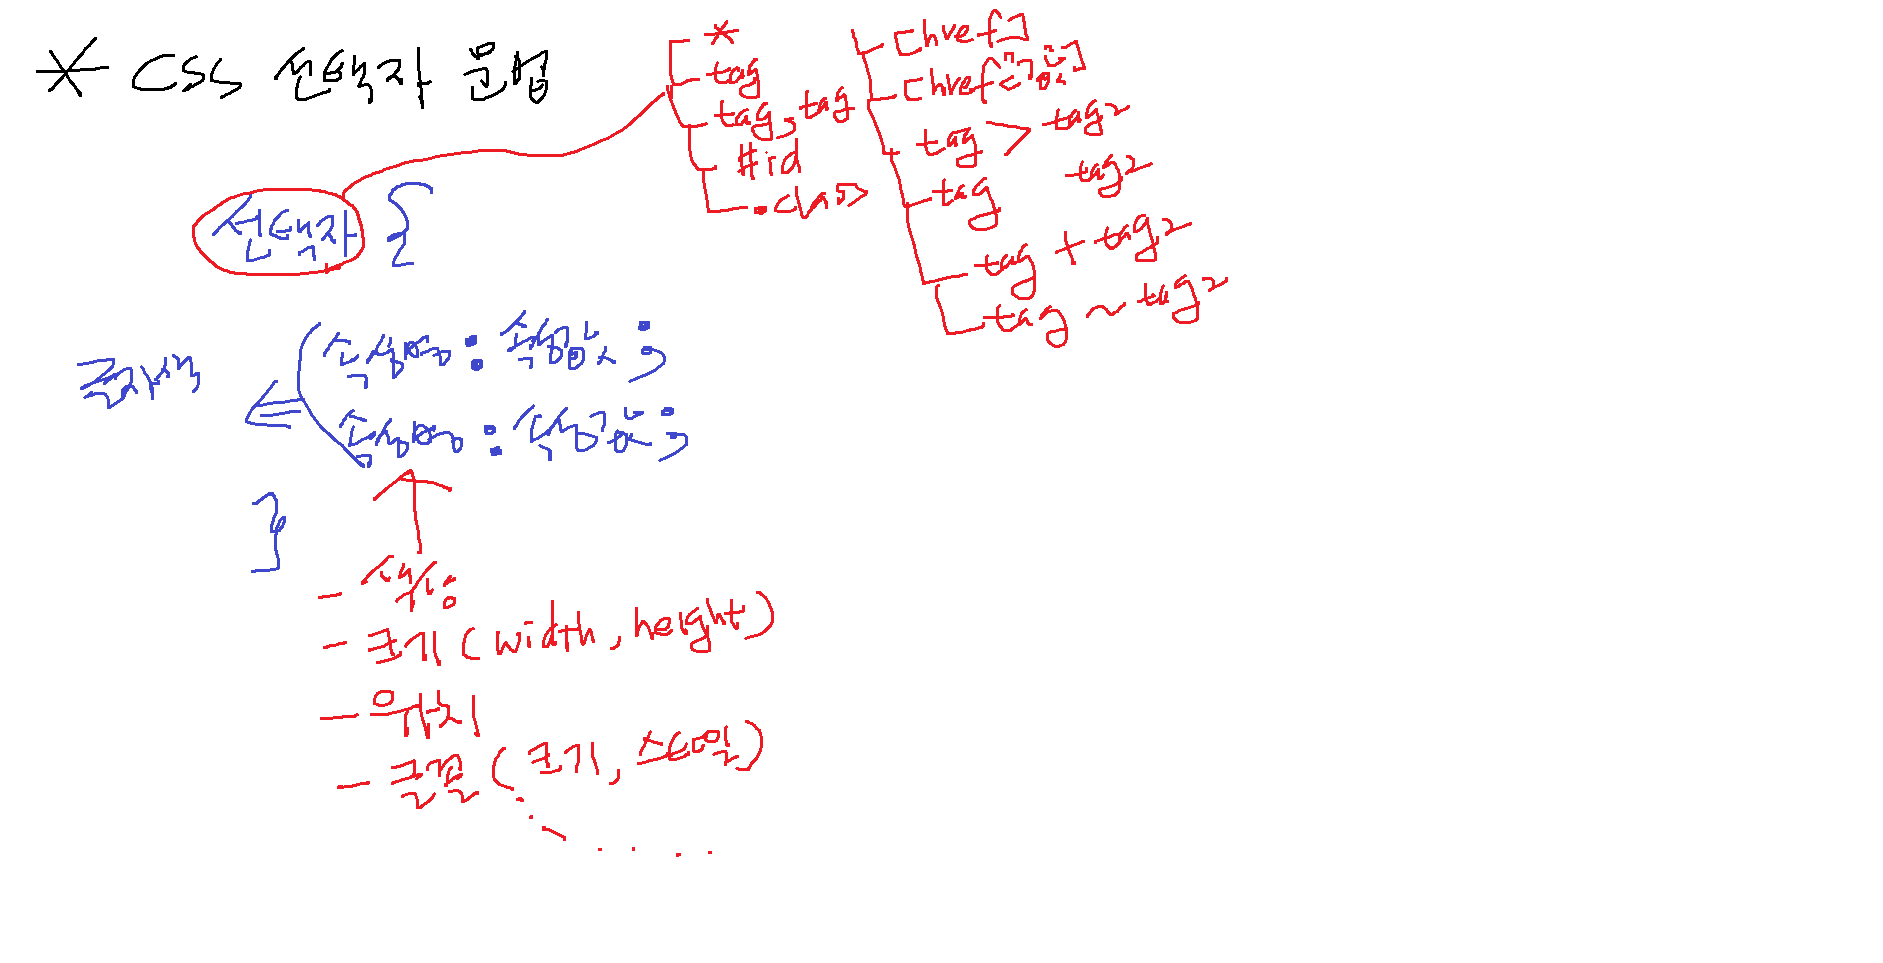 * CSS 선택자 문법
*
tag
tag, tag
#id
.class
[href]
[href="값"]
tag > tag2
tag tag2
tag + tag2
tag ~ tag2
선택자 {
속성명 : 속성값 ;
속성명 : 속성값 ;
}
글자색
- 색상
- 크기 (width, height)
- 위치
- 글꼴 (크기, 스타일)
. . . .